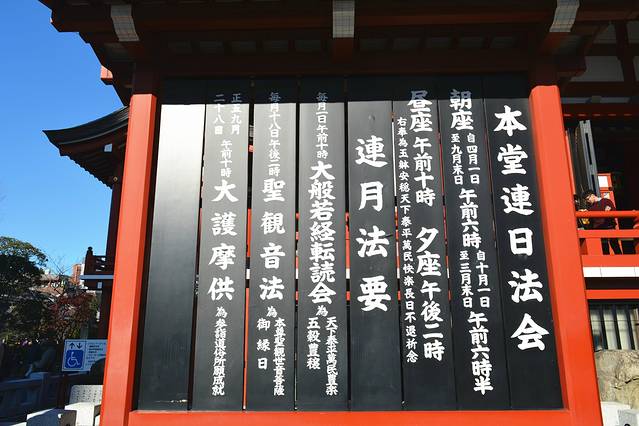 本堂連日法会
朝座 自四月一日 至九月末日 午前六時 自十月一日 至三月末日 午前六時半
昼座 午前十時 夕座 午後二時
右奉為玉躰安穏天下泰平萬民快楽長日不退祈念
連月法要
毎月一日午前十時 大般若経転読会 為 天下泰平萬民豊楽 五穀豊穣
毎月十八日午後二時 聖観音法 為 本尊聖観世音菩薩 御縁日
正五九月 二十八日 午前十時 大護摩供 為 参詣道俗所願成就